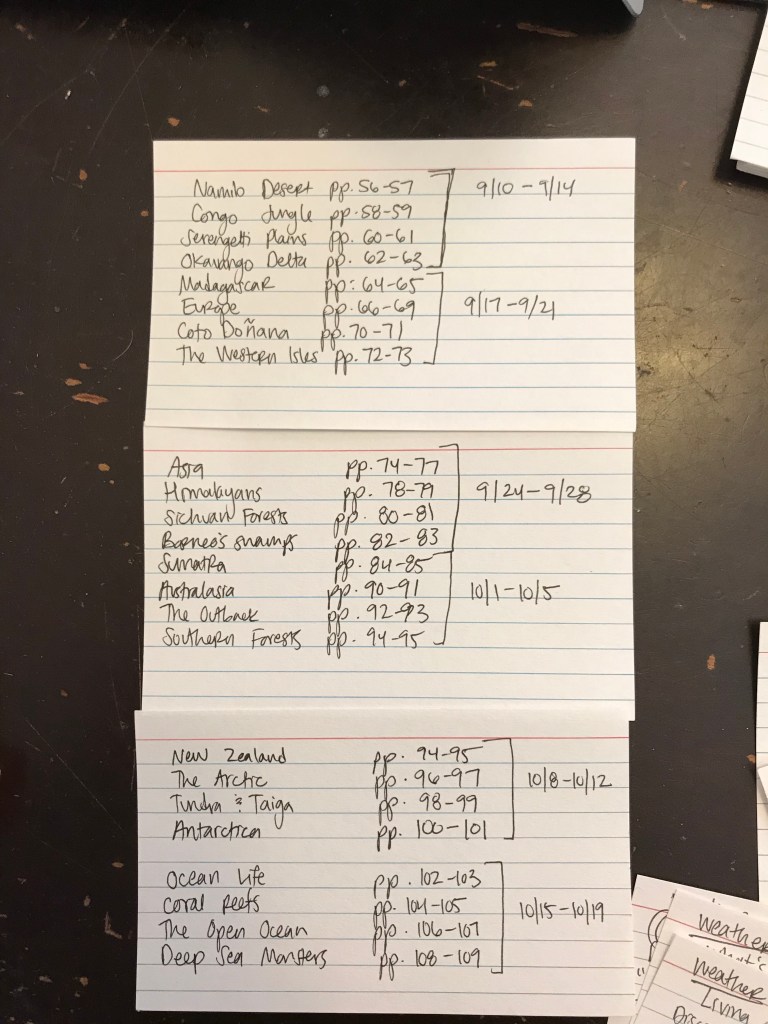 Namib Desert pp. 56-57
Congo Jungle pp. 58-59
9/10 - 9/14
Serengetti Plains pp. 60-61
Okavango Delta pp. 62-63
Madagascar pp: 64-65
Europe pp. 66-69
9/17-9/21
Coto Doñana pp. 70-71
The Western Isles pp. 72-73
Asia pp. 74-77
Himalayans pp. 78-79
9/24-9/28
Sichuan Forests pp. 80-81
Borneo's swamps pp. 82-83
Sumatra pp. 84-85
Australasia pp. 90-91
10/1-10/5
The Outback pp. 92-93
Southern Forests pp. 94-95
New Zealand pp. 94-95
The Arctic pp. 96-97
10/8-10/12
Tundra & Taiga pp. 98-99
Antarctica pp. 100-101
Ocean Life pp. 102-103
Coral Reefs pp. 104-105
10/15-10/19
The Open Ocean pp. 106-107
Deep Sea Monsters pp. 108-109
Weather
Weather
Living